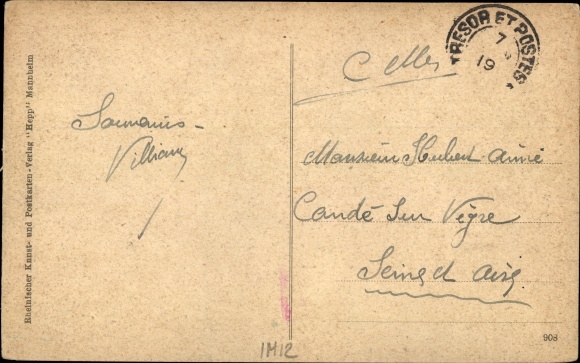 Rheinischer Kunst- und Postkarten-Verlag "Hepp" Mannheim
TRESOR ET POSTES
7
19
Souvenirs -
Monsieur Hubert Aimé
Condé sur Vègre
Seine et Oise
1M12
908